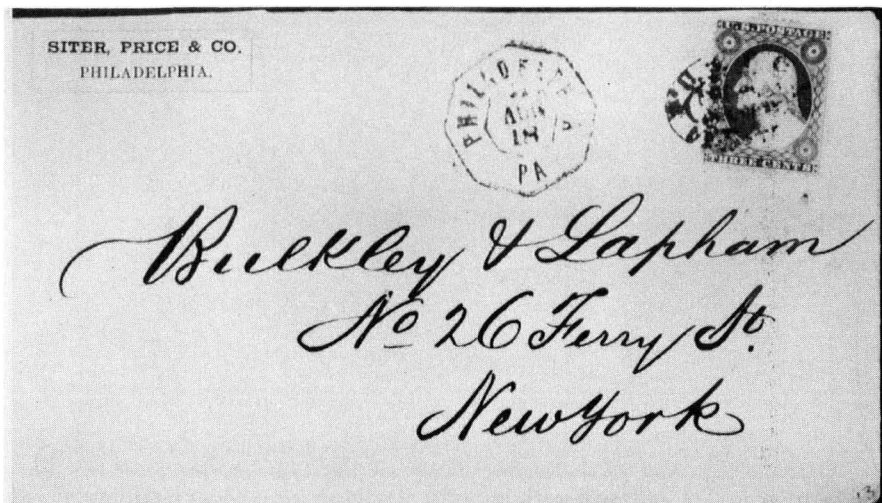 SITER, PRICE & CO.
PHILADELPHIA.
PHILADELPHIA
AUG
18
PA
U.S. POSTAGE
THREE CENTS
Bulkley & Lapham
No 26 Ferry St.
New York